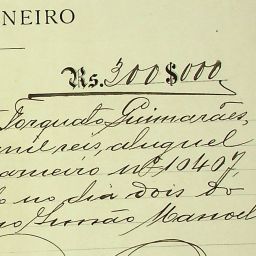 NEIRO
Rs. 300$000
Torquato Guimarães,
mil reis, aluguel
arneiro nº 10407
no dia dois do
Simão Manoel